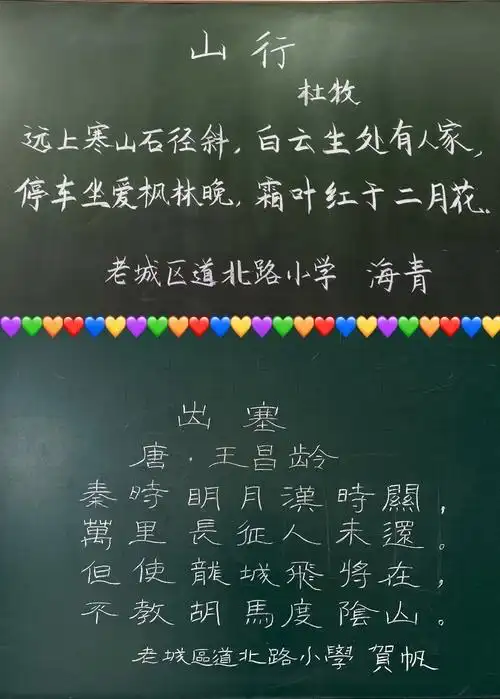 山行
杜牧
远上寒山石径斜，白云生处有人家，
停车坐爱枫林晚，霜叶红于二月花.
老城区道北路小学 海青
出塞
唐·王昌龄
秦時明月漢時關，
萬里長征人未還。
但使龍城飛將在，
不教胡馬度陰山。
老城區道北路小學 賀帆